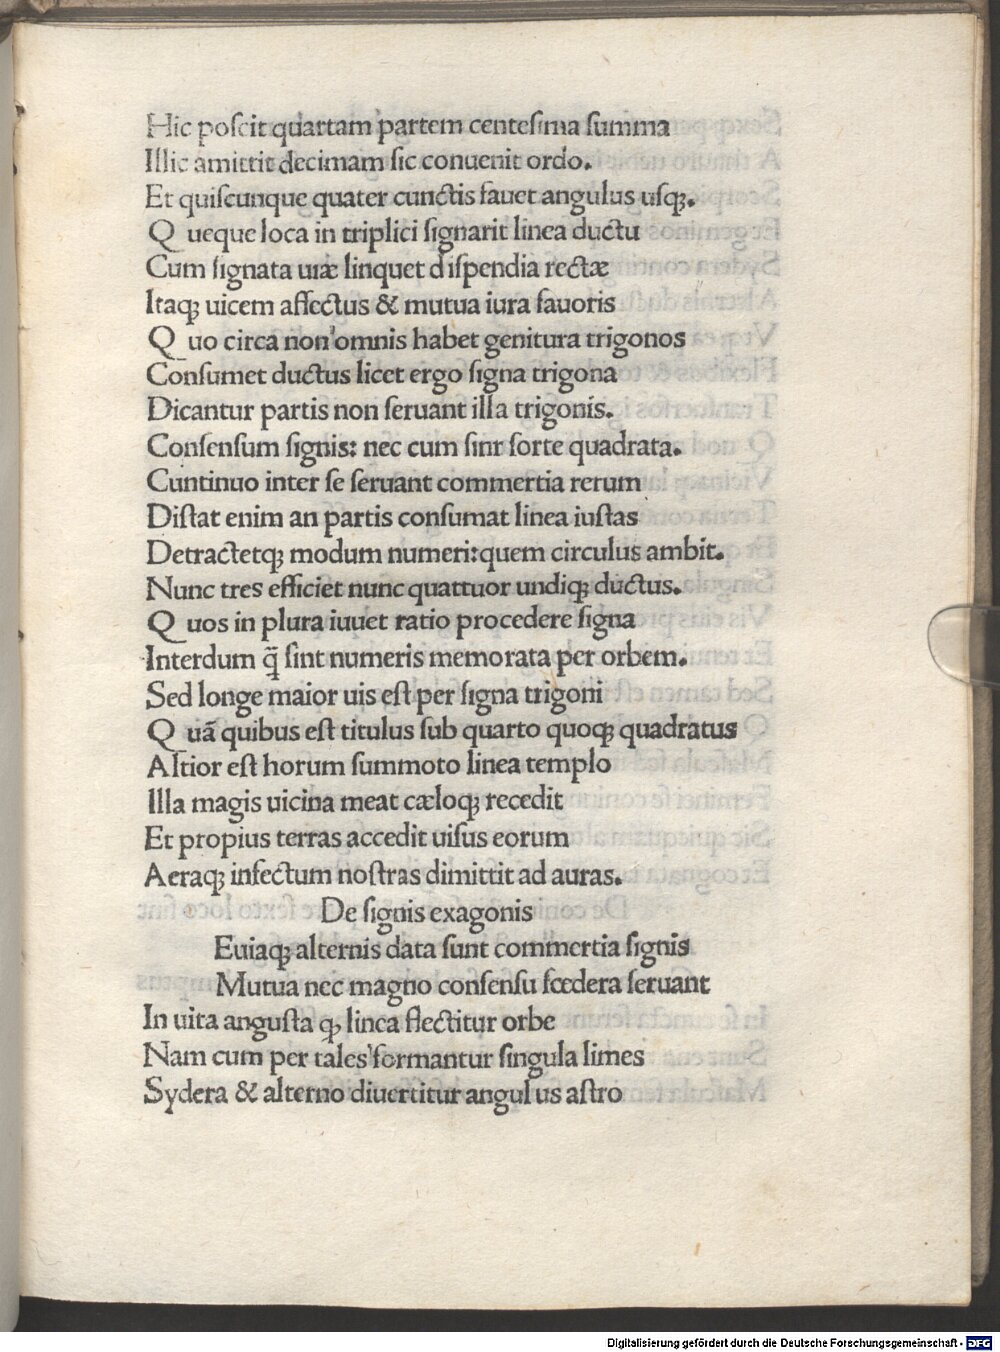 Hic poſcit quartam partem centeſima ſumma
Illic amittit decimam ſic conuenit ordo.
Et quiſcunque quater cunctis fauet angulus uſqꝫ.
Q ueque loca in triplici ſignarit linea ductu
Cum ſignata uiæ linquet diſpendia rectæ
Itaqꝫ uicem affectus & mutua iura fauoris
Q uo circa non omnis habet genitura trigonos
Conſumet ductus licet ergo ſigna trigona
Dicantur partis non ſeruant illa trigonis.
Conſenſum ſignis: nec cum ſint ſorte quadrata.
Cuntinuo inter ſe ſeruant commertia rerum
Diſtat enim an partis conſumat linea iuſtas
Detractetqꝫ modum numeri:quem circulus ambit.
Nunc tres efficiet nunc quattuor undiqꝫ ductus.
Q uos in plura iuuet ratio procedere ſigna
Interdum q̃ ſint numeris memorata per orbem.
Sed longe maior uis eſt per ſigna trigoni
Q uã quibus eſt titulus ſub quarto quoqꝫ quadratus
Altior eſt horum ſummoto linea templo
Illa magis uicina meat cæloqꝫ recedit
Et propius terras accedit uiſus eorum
Aeraqꝫ infectum noſtras dimittit ad auras.
De ſignis exagonis
Euiaqꝫ alternis data ſunt commertia ſignis
Mutua nec magno conſenſu fœdera ſeruant
In uita anguſta qꝫ linea flectitur orbe
Nam cum per tales formantur ſingula limes
Sydera & alterno diuertitur angulus aſtro
Digitalisierung gefördert durch die Deutsche Forschungsgemeinschaft - DFG